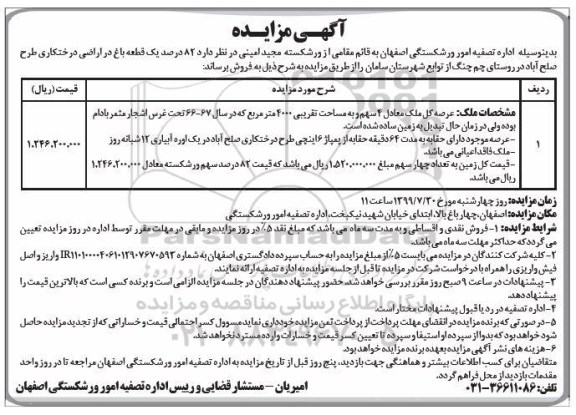 آگهی مزایده
بدینوسیله اداره تصفیه امور ورشکستگی اصفهان به قائم مقامی از ورشکسته مجید امینی در نظر دارد ۸۲ درصد یک قطعه باغ در اراضی درختکاری طرح
صلح آباد در روستای چم چنگ از توابع شهرستان سامان را از طریق مزایده به شرح ذیل به فروش برساند:
ردیف شرح مورد مزایده قیمت (ریال)
۱ مشخصات ملک: عرصه کل ملک معادل ۴ سهم و به مساحت تقریبی ۴۰۰۰ متر مربع که در سال ۶۷-۶۶ تحت غرس اشجار مثمر بادام
بوده ولی در زمان حال تبدیل به زمین ساده شده است.
- عرصه موجود دارای حقابه به مدت ۶۴ دقیقه حقابه از پمپاژ ۶ اینچی طرح درختکاری صلح آباد در یک اوره آبیاری ۱۲ شبانه روز
- ملک فاقد اعیانی می باشد.
- قیمت کل زمین به تعداد چهار سهم مبلغ ۱.۵۲۰.۰۰۰.۰۰۰ ریال می باشد که قیمت ۸۲ درصد سهم ورشکسته معادل ۱.۲۴۶.۲۰۰.۰۰۰
ریال می باشد.
۱.۲۴۶.۲۰۰.۰۰۰
زمان مزایده: روز چهارشنبه مورخ ۱۳۹۹/۷/۳۰ ساعت ۱۱
مکان مزایده: اصفهان، چهار باغ بالا، ابتدای خیابان شهید نیکبخت، اداره تصفیه امور ورشکستگی
شرایط مزایده: ۱- فروش نقدی و اقساطی و به مدت سه ماه می باشد که مبلغ نقد ۵٪ در روز مزایده و مابقی در مهلت مقرر توسط اداره در روز مزایده تعیین
می گردد که حداکثر مهلت سه ماه می باشد.
۲- کلیه شرکت کنندگان در مزایده می بایست ۵٪ از مبلغ مزایده را به حساب سپرده دادگستری اصفهان به شماره واریز و اصل
فیش واریزی را همراه با درخواست شرکت در مزایده تا قبل از جلسه مزایده به اداره تصفیه ارائه نمایند.
۳- پیشنهادات در ساعت ۹ صبح روز مقرر بررسی خواهد شد، حضور پیشنهاد دهندگان در جلسه مزایده الزامی است و برنده کسی است که بالاترین قیمت را
پیشنهاد دهد.
۴- اداره تصفیه در رد یا قبول پیشنهادات مختار است.
۵- در صورتی که برنده مزایده در انقضای مهلت پرداخت از پرداخت ثمن مزایده خودداری نماید مسوول کسر احتمالی قیمت و خساراتی که از تجدید مزایده حاصل
شود خواهد بود که بدوا از سپرده او استیفا و سپرده تا تعیین کسر قیمت و خسارات وارده مسترد نخواهد شد.
۶- هزینه های نشر آگهی مزایده بعهده برنده مزایده خواهد بود.
متقاضیان برای کسب اطلاعات بیشتر و هماهنگی جهت بازدید، پنج روز قبل از تاریخ مزایده به اداره تصفیه امور ورشکستگی اصفهان مراجعه تا در روز واحد
مقدمات بازدید از محل فراهم گردد.
تلفن: ۰۳۱-۳۶۶۱۱۰۸۶
امیریان - مستشار قضایی و رییس اداره تصفیه امور ورشکستگی اصفهان